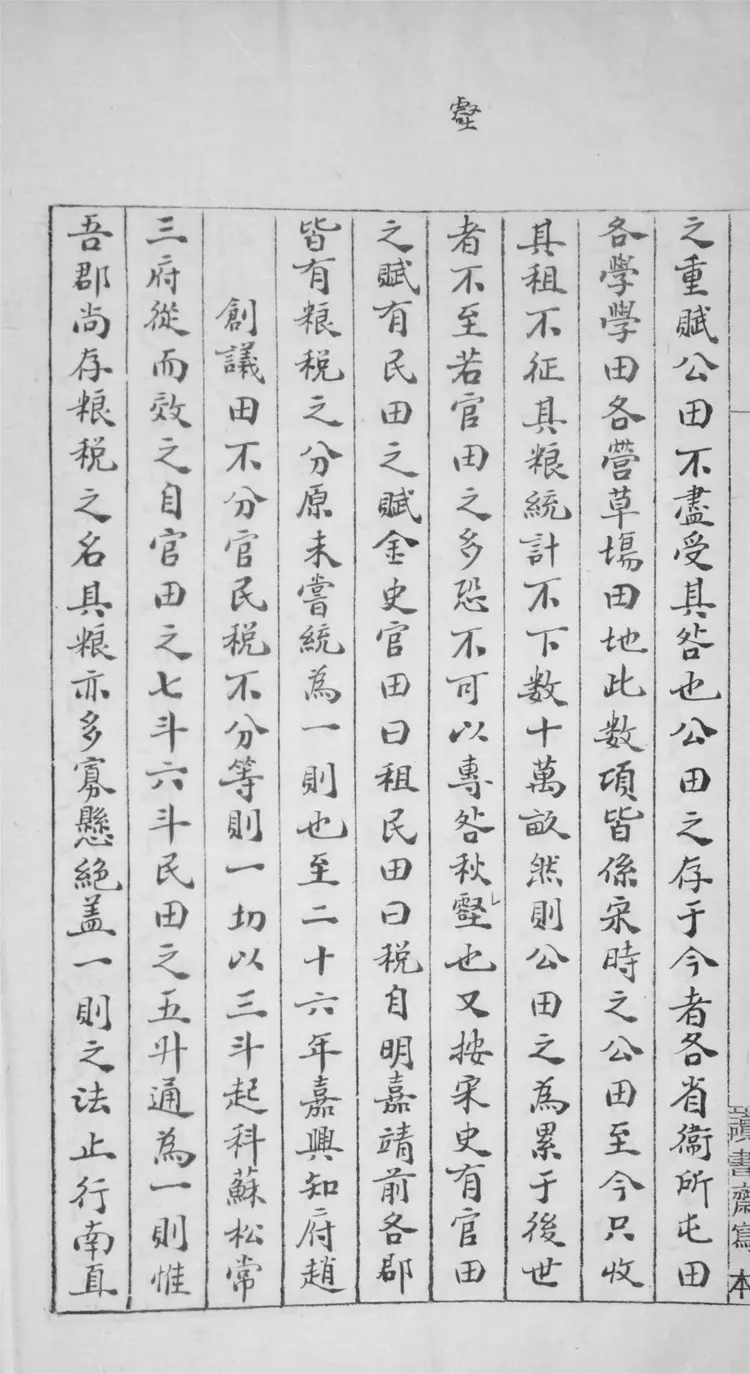 壑
之重賦公田不盡受其咎也公田之存于今者各省衞所屯田
各學學田各營草塲田地此數項皆係宋時之公田至今只收
其租不征其粮統計不下數十萬畝然則公田之為累于後世
者不至若官田之多恐不可以專咎秋壑也又按宋史有官田
之賦有民田之賦金史官田曰租民田曰税自明嘉靖前各郡
皆有粮税之分原未嘗統為一則也至二十六年嘉興知府趙
創議田不分官民税不分等則一切以三斗起科蘇松常
三府從而效之自官田之七斗六斗民田之五升通為一則惟
吾郡尚存粮税之名其粮亦多寡懸絶盖一則之法止行南直
讀書齋寫本